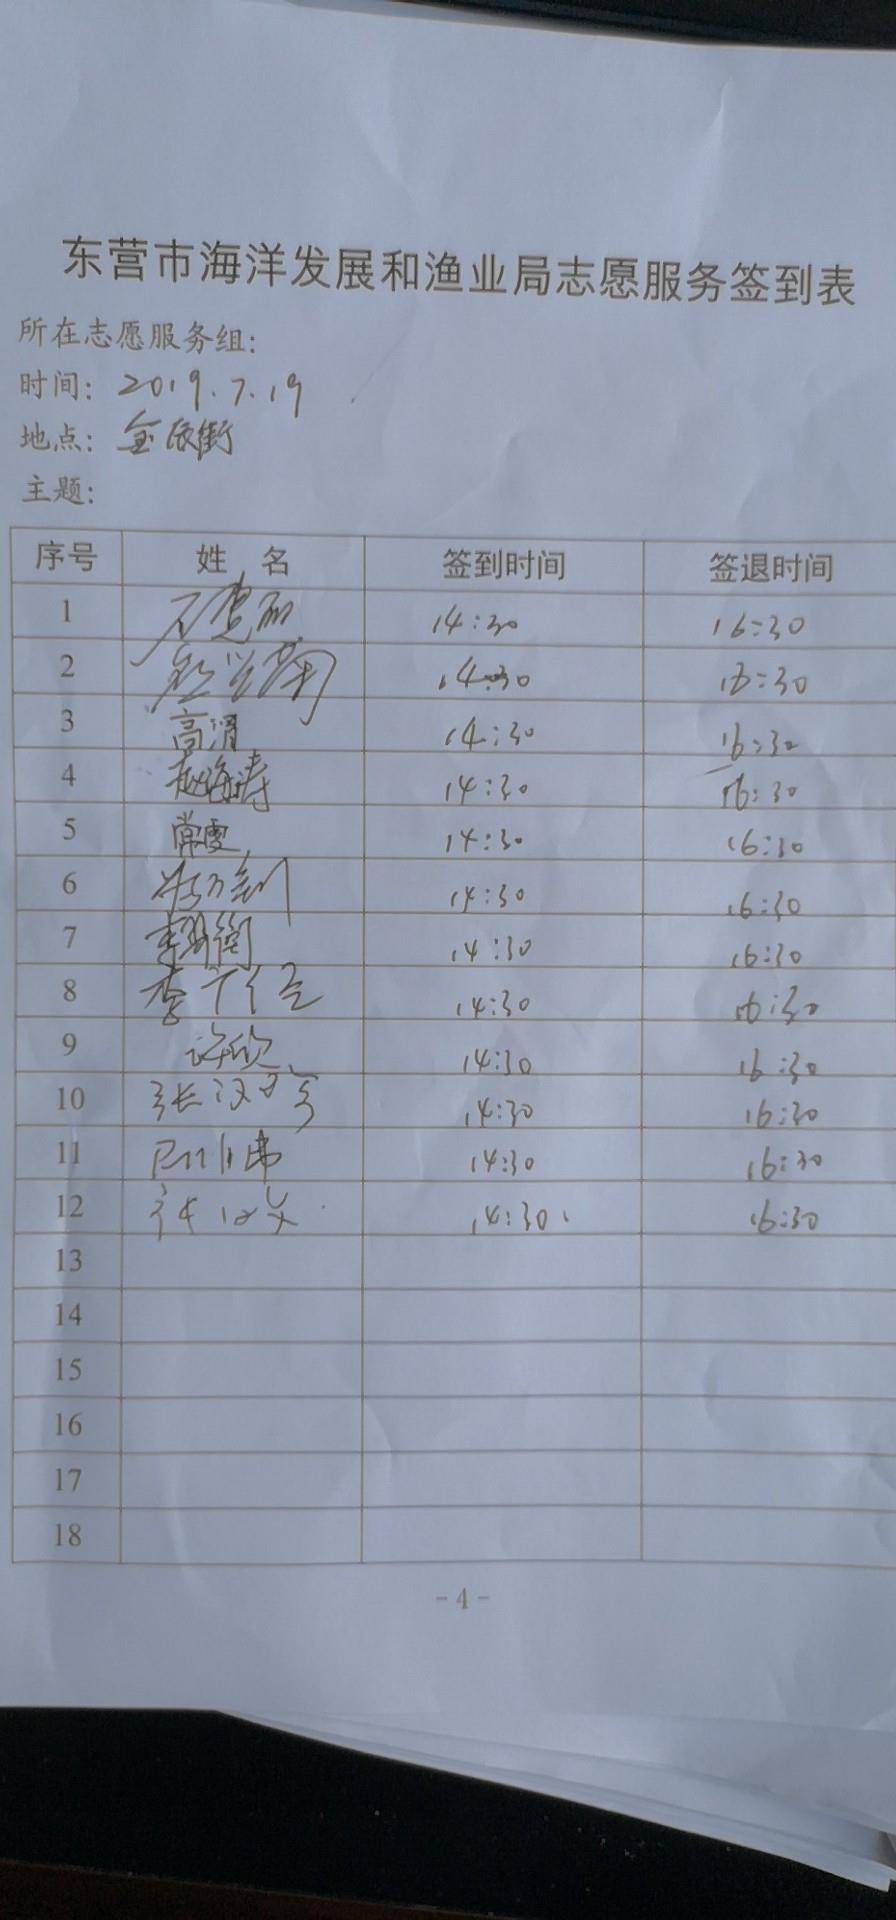 东营市海洋发展和渔业局志愿服务签到表
所在志愿服务组:
时间: 2019.7.19
地点: 金辰街
主题:
序号 姓 名 签到时间 签退时间
1 14:30 16:30
2 14:30 16:30
3 高涓 14:30 16:30
4 赵海涛 14:30 16:30
5 常雯 14:30 16:30
6 14:30 16:30
7 14:30 16:30
8 李 14:30 16:30
9 许欣 14:30 16:30
10 张汉 14:30 16:30
11 14:30 16:30
12 14:30 16:30
13
14
15
16
17
18
- 4 -